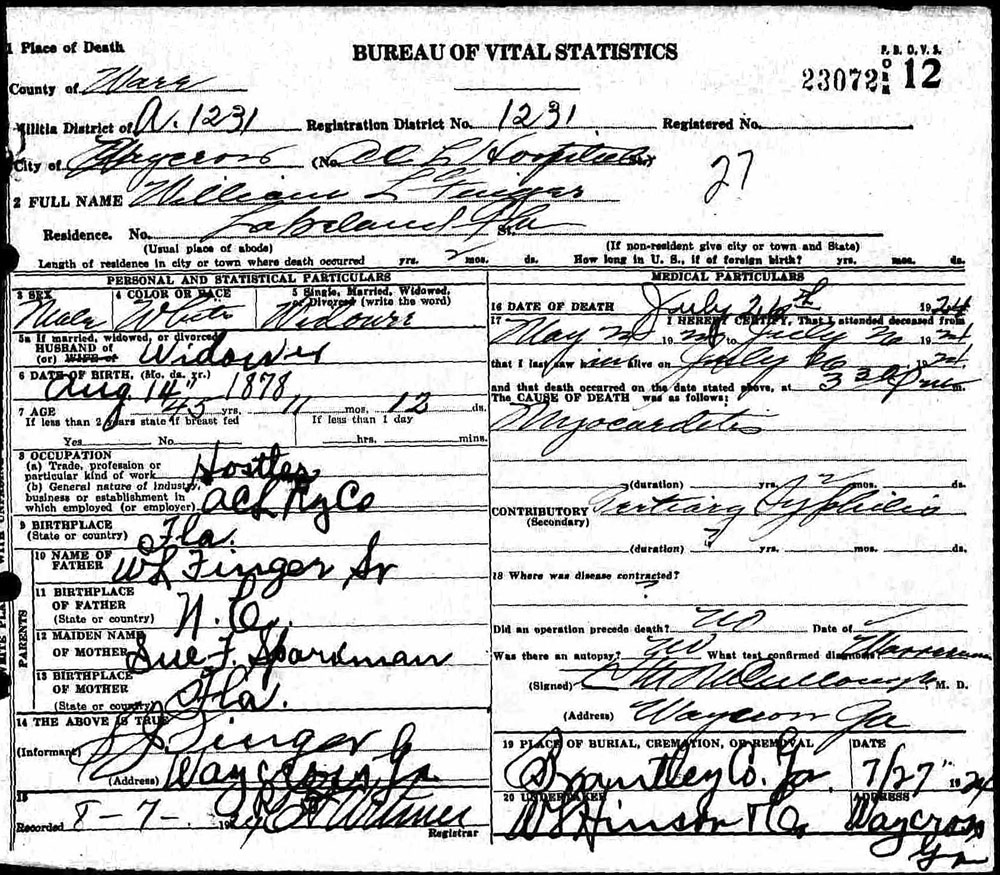 1 Place of Death
BUREAU OF VITAL STATISTICS
P. B. O. V. S.
FORM 12
23072
County of Ware
Militia District of A. 1231 Registration District No. 1231 Registered No.
City of Waycross (No. ACL Hospital St.)
27
2 FULL NAME William L Finger
Residence. No. Lakeland Fla St.
(Usual place of abode) (If non-resident give city or town and State)
Length of residence in city or town where death occurred yrs. 2 mos. ds. How long in U. S., if of foreign birth? yrs. mos. ds.
PERSONAL AND STATISTICAL PARTICULARS
3 SEX Male
4 COLOR OR RACE White
5 Single, Married, Widowed, or Divorced (write the word) Widower
5a If married, widowed, or divorced
HUSBAND of
(or) WIFE of Widower
6 DATE OF BIRTH, (Mo. da. yr.)
Aug. 14" 1878
7 AGE 45 yrs. 11 mos. 12 ds.
If less than 2 years state if breast fed If less than 1 day
Yes No hrs. mins.
8 OCCUPATION
(a) Trade, profession or
particular kind of work Hostler
(b) General nature of industry,
business or establishment in
which employed (or employer) ACL Ry Co
9 BIRTHPLACE
(State or country) Fla.
PARENTS
10 NAME OF
FATHER WL Finger Sr
11 BIRTHPLACE
OF FATHER
(State or country) N. C.
12 MAIDEN NAME
OF MOTHER Sue F. Sparkman
13 BIRTHPLACE
OF MOTHER
(State or country) Fla.
14 THE ABOVE IS TRUE
(Informant) Finger Jr
(Address) Waycross, Ga.
15
Recorded 8-7- 192 Witmer
Registrar
MEDICAL PARTICULARS
16 DATE OF DEATH July 26th 1924
17 I HEREBY CERTIFY, That I attended deceased from
May 1924 to July 26 1924
that I last saw him alive on July 26 1924
and that death occurred on the date stated above, at 3 30 P m.
The CAUSE OF DEATH was as follows:
Myocarditis
(duration) yrs. 2 mos. ds.
CONTRIBUTORY Tertiary Syphilis
(Secondary)
(duration) ? yrs. mos. ds.
18 Where was disease contracted?
?
Did an operation precede death? no Date of
Was there an autopsy? no What test confirmed diagnosis? Wasserman
(Signed) McCullough, M. D.
(Address) Waycross Ga
19 PLACE OF BURIAL, CREMATION, OR REMOVAL DATE
Brantley Co. Ga 7/27" 1924
20 UNDERTAKER ADDRESS
WL Hinson & Co. Waycross
Ga